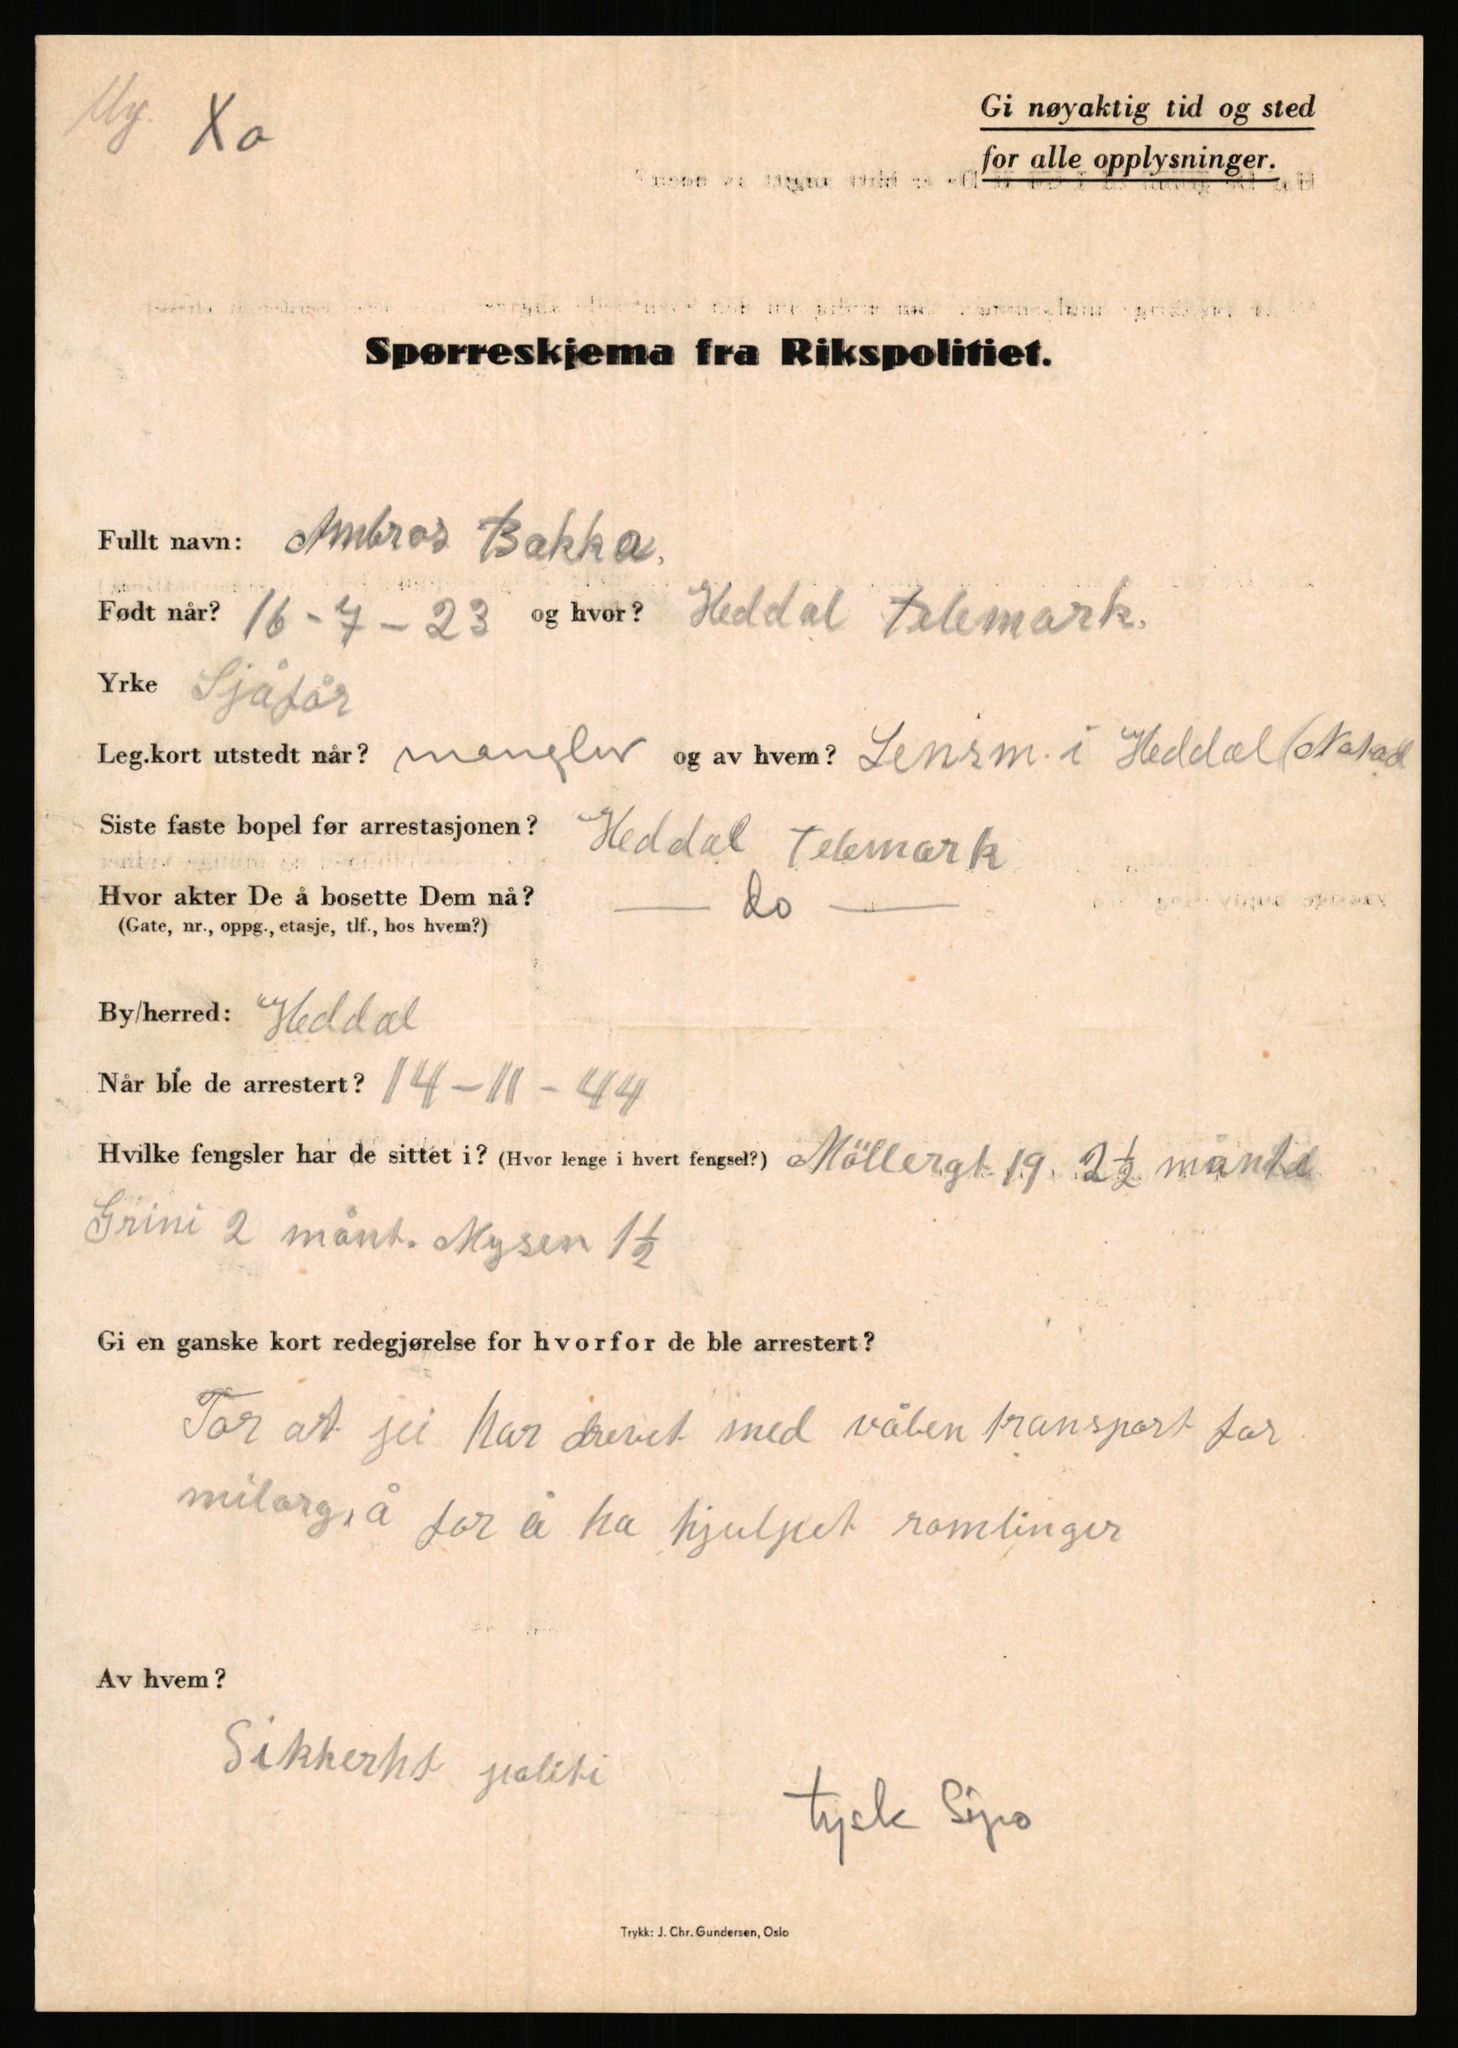 My. Xo
Gi nøyaktig tid og sted
for alle opplysninger.
Spørreskjema fra Rikspolitiet.
Fullt navn: Ambros Bakka.
Født når? 16-7-23 og hvor? Heddal Telemark.
Yrke Sjåfør
Leg.kort utstedt når? mangler og av hvem? Lensm. i Heddal
Siste faste bopel før arrestasjonen? Heddal Telemark
Hvor akter De å bosette Dem nå? — do —
(Gate, nr., oppg., etasje, tlf., hos hvem?)
By/herred: Heddal
Når ble de arrestert? 14-11-44
Hvilke fengsler har de sittet i? (Hvor lenge i hvert fengsel?) Möllergt 19. 2½
Grini 2 månt. Mysen 1½
Gi en ganske kort redegjørelse for hvorfor de ble arrestert?
For at jei har drevet med våben transport for
milorg, å for å ha hjulpet romlinger
Av hvem?
Sikkerht politi
tysk Sipo
Trykk: J. Chr. Gundersen, Oslo